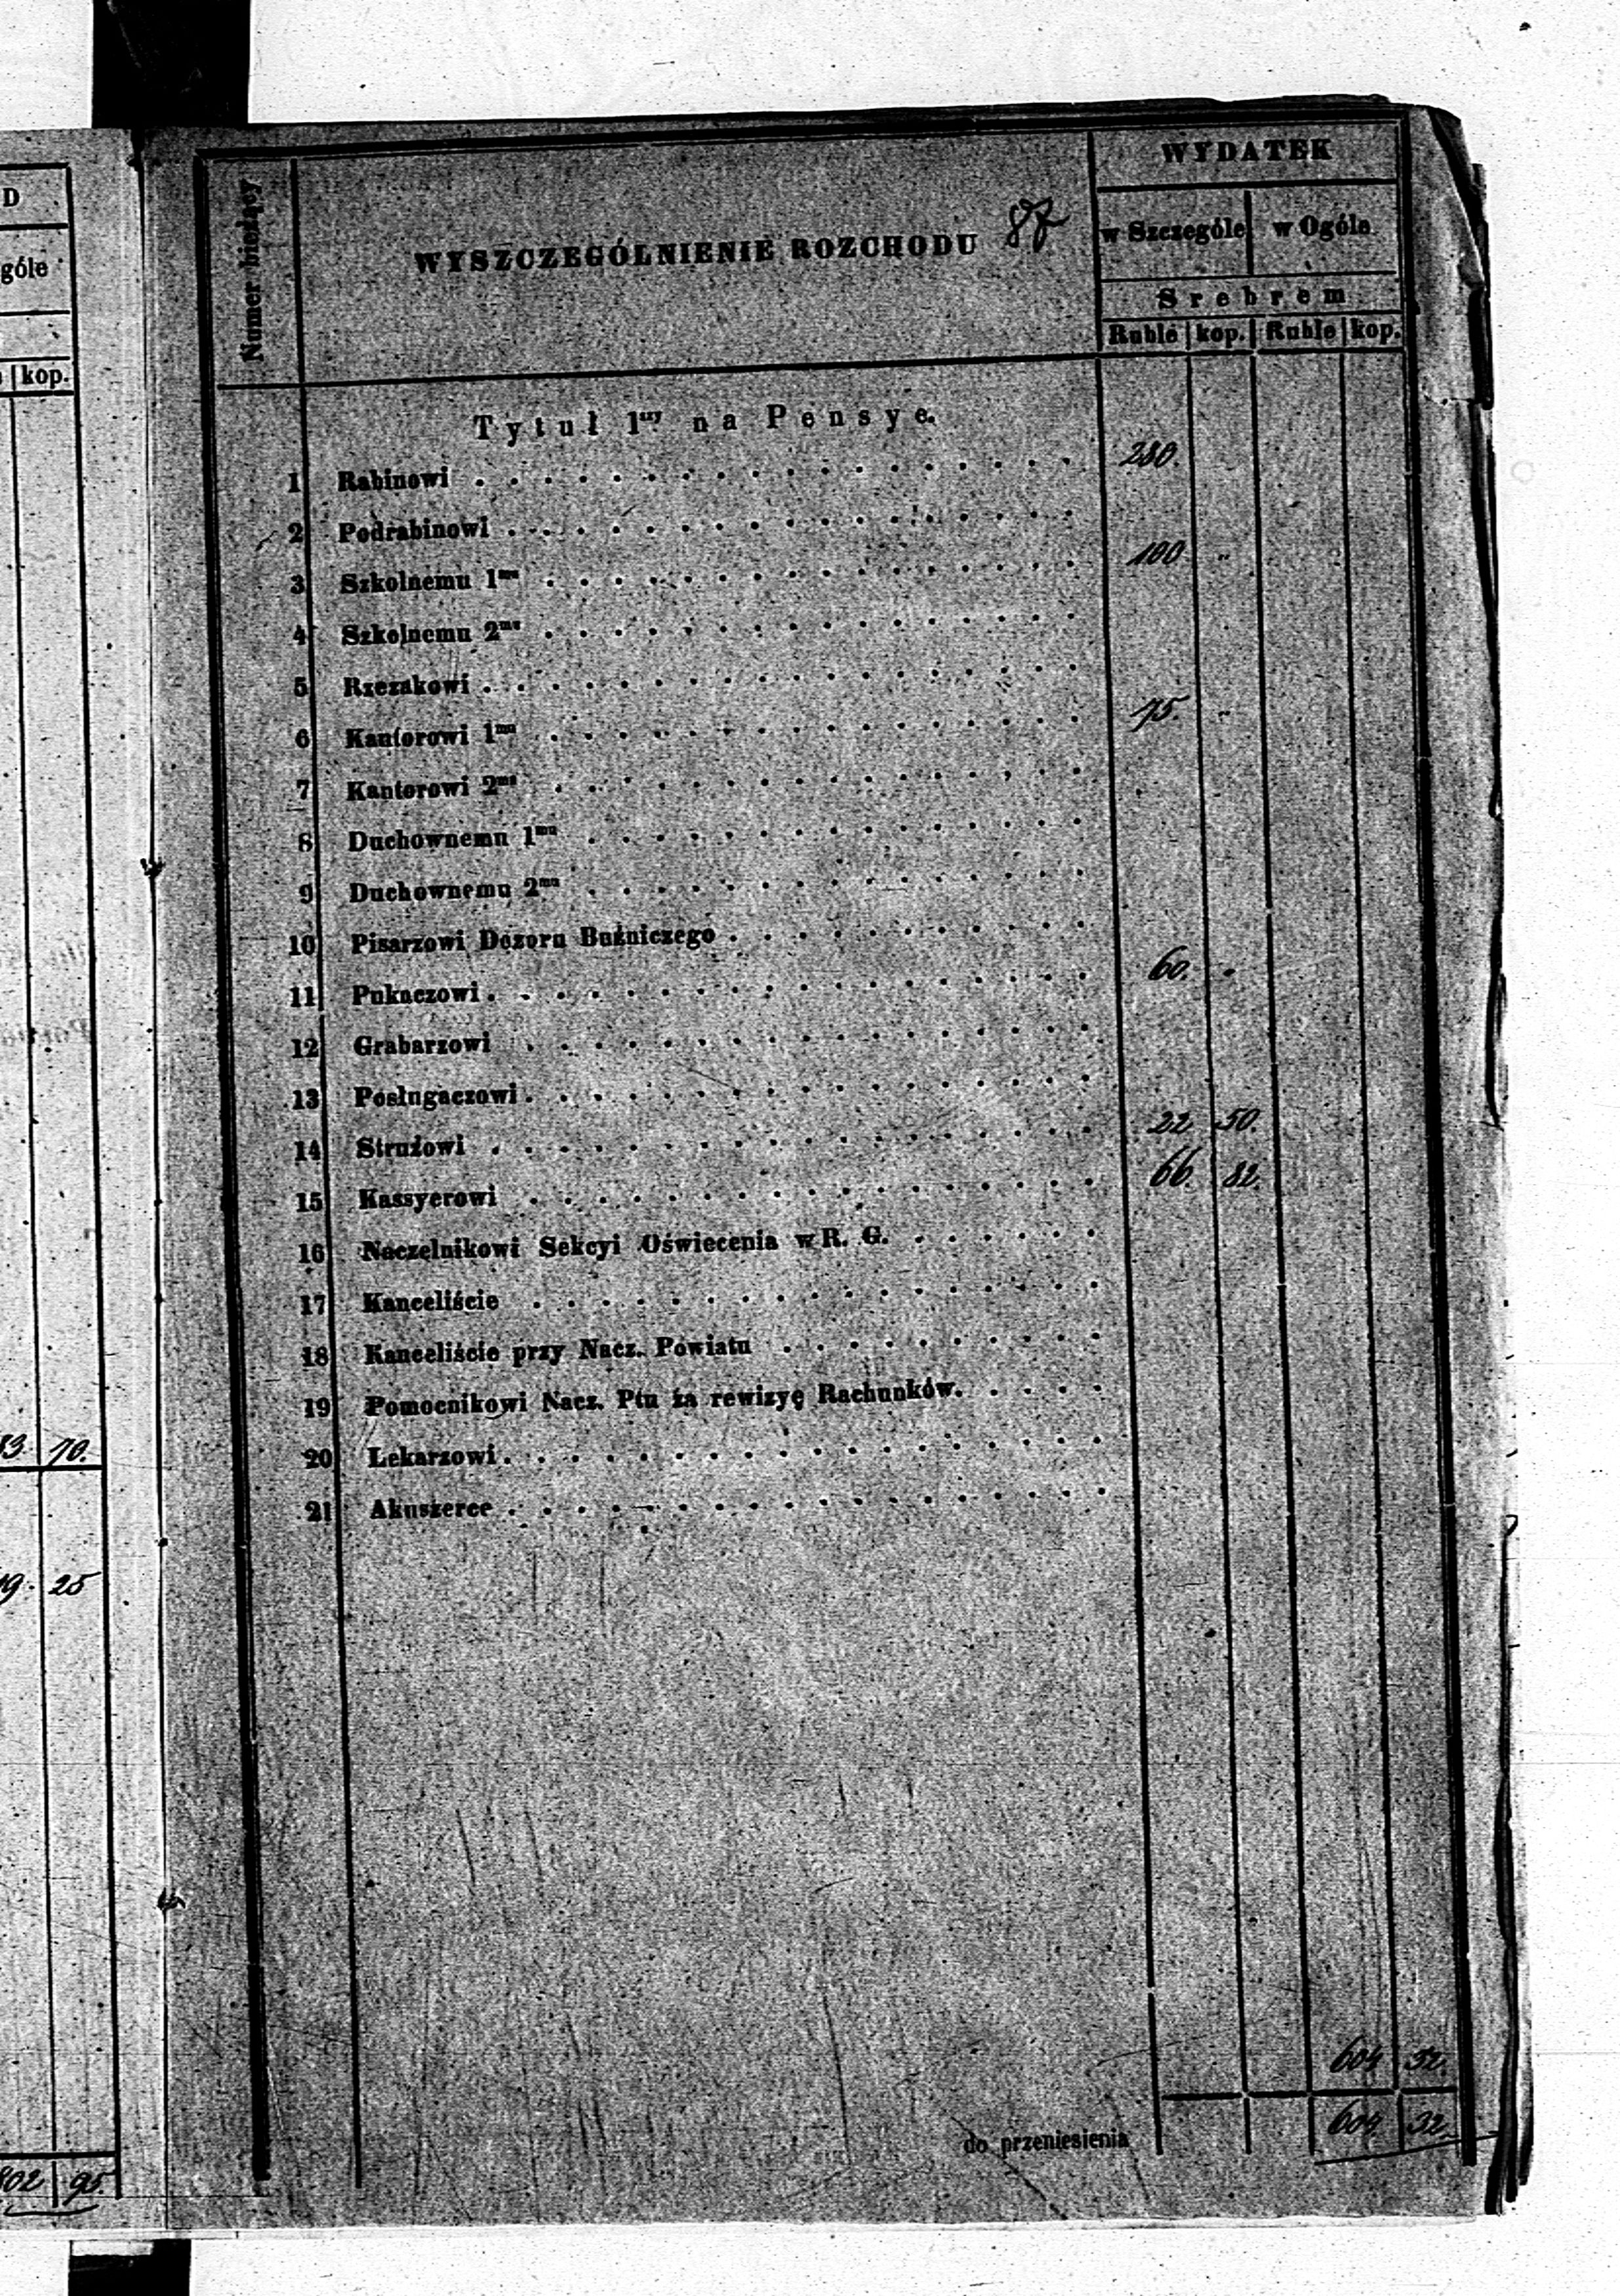 D
góle
kop.
10.
19. 25
802 95.
Numer bieżący
WYSZCZEGÓLNIENIE ROZCHODU 87
WYDATEK
w Szczególe w Ogóle
Srebrem
Ruble kop. Ruble kop.
Tytuł 1szy na Pensye.
1 Rabinowi 280.
2 Podrabinowi
3 Szkolnemu 1mu 100 "
4 Szkolnemu 2mu
5 Rzezakowi
6 Kantorowi 1mu 75. "
7 Kantorowi 2mu
8 Duchownemu 1mu
9 Duchownemu 2mu
10 Pisarzowi Dozoru Bużniczego
11 Pukaczowi 60. "
12 Grabarzowi
13 Posługaczowi
14 Strużowi 22 50.
15 Kassyerowi 66. 82.
16 Naczelnikowi Sekcyi Oświecenia w R. G.
17 Kanceliście
18 Kanceliście przy Nacz. Powiatu
19 Pomocnikowi Nacz. Ptu za rewizyę Rachunków.
20 Lekarzowi
21 Akuszerce
604 32
do przeniesienia 604. 32.